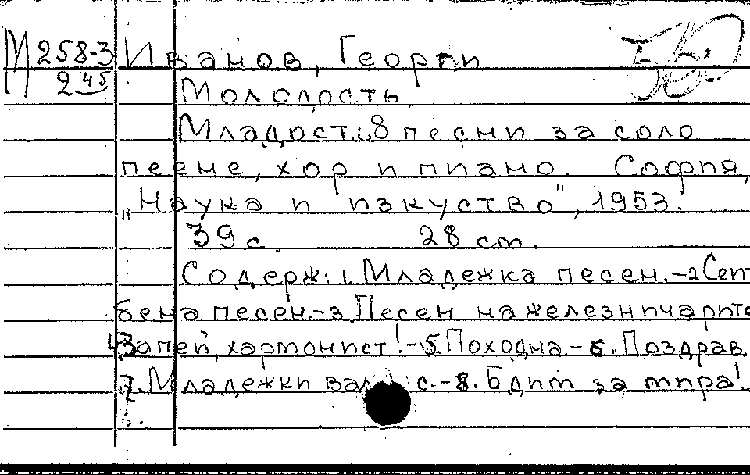 М 258-3 Иванов, Георги
2 45
Молодость
Младост: 8 песни за соло
пеене, хор и пиано. София,
„Наука и изкуство", 1953.
39 с. 28 cm.
Содерж: 1. Младежка песен. - 2 Сеп
бена песен. - 3. Песен на железничарите
4 Запей, хармонист! - 5. Походна - 6. Поздрав
7. Младежки с. - 8. Бдим за мира!